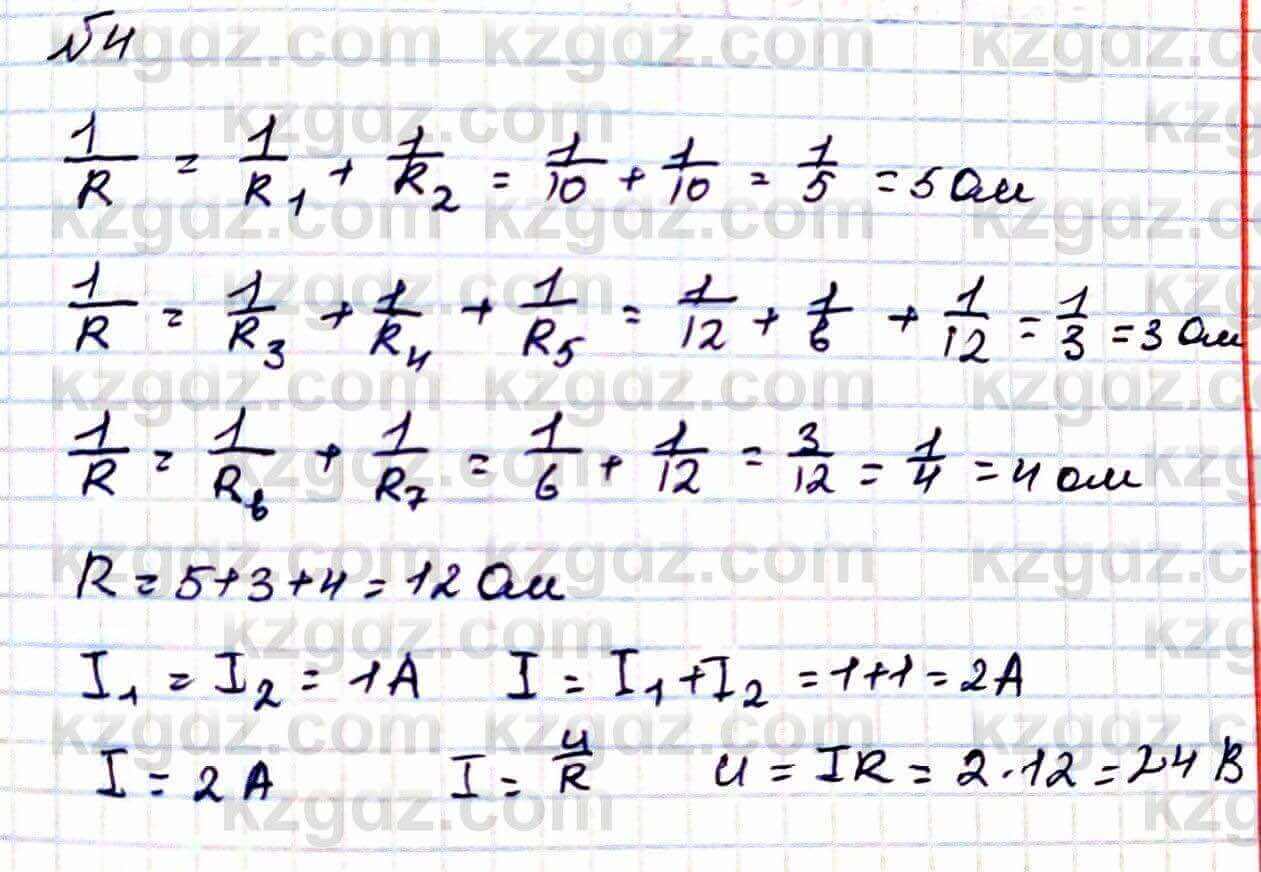 №4
1/R = 1/R₁ + 1/R₂ = 1/10 + 1/10 = 1/5 = 5 Ом
1/R = 1/R₃ + 1/R₄ + 1/R₅ = 1/12 + 1/6 + 1/12 = 1/3 = 3 Ом
1/R = 1/R₆ + 1/R₇ = 1/6 + 1/12 = 3/12 = 1/4 = 4 ом
R = 5+3+4 = 12 Ом
I₁ = I₂ = 1A I = I₁+I₂ = 1+1 = 2A
I = 2A I = u/R u = IR = 2·12 = 24 B
kzgdz.com